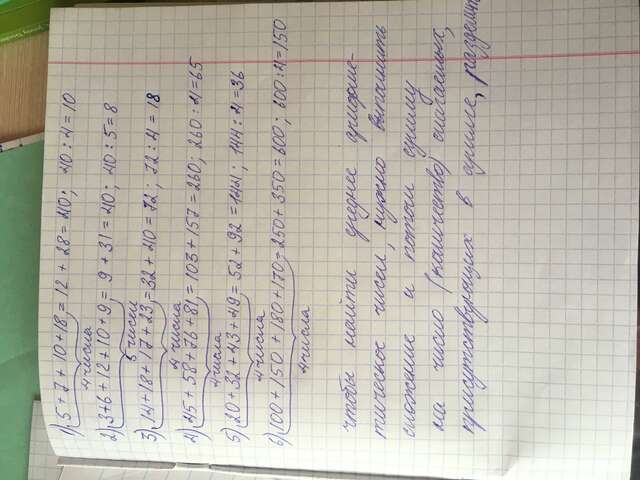 1) 5 + 7 + 10 + 18 = 12 + 28 = 40; 40 : 4 = 10
4 числа
2) 3 + 6 + 12 + 10 + 9 = 9 + 31 = 40; 40 : 5 = 8
5 чисел
3) 14 + 18 + 17 + 23 = 32 + 40 = 72; 72 : 4 = 18
4 числа
4) 45 + 58 + 76 + 81 = 103 + 157 = 260; 260 : 4 = 65
4 числа
5) 20 + 32 + 43 + 49 = 52 + 92 = 144; 144 : 4 = 36
4 числа
6) 100 + 150 + 180 + 170 = 250 + 350 = 600; 600 : 4 = 150
4 числа
чтобы найти среднее арифме-
тическое чисел, нужно выполнить
сложение и потом сумму
на число (количество) слагаемых,
присутствующих в сумме, разделить